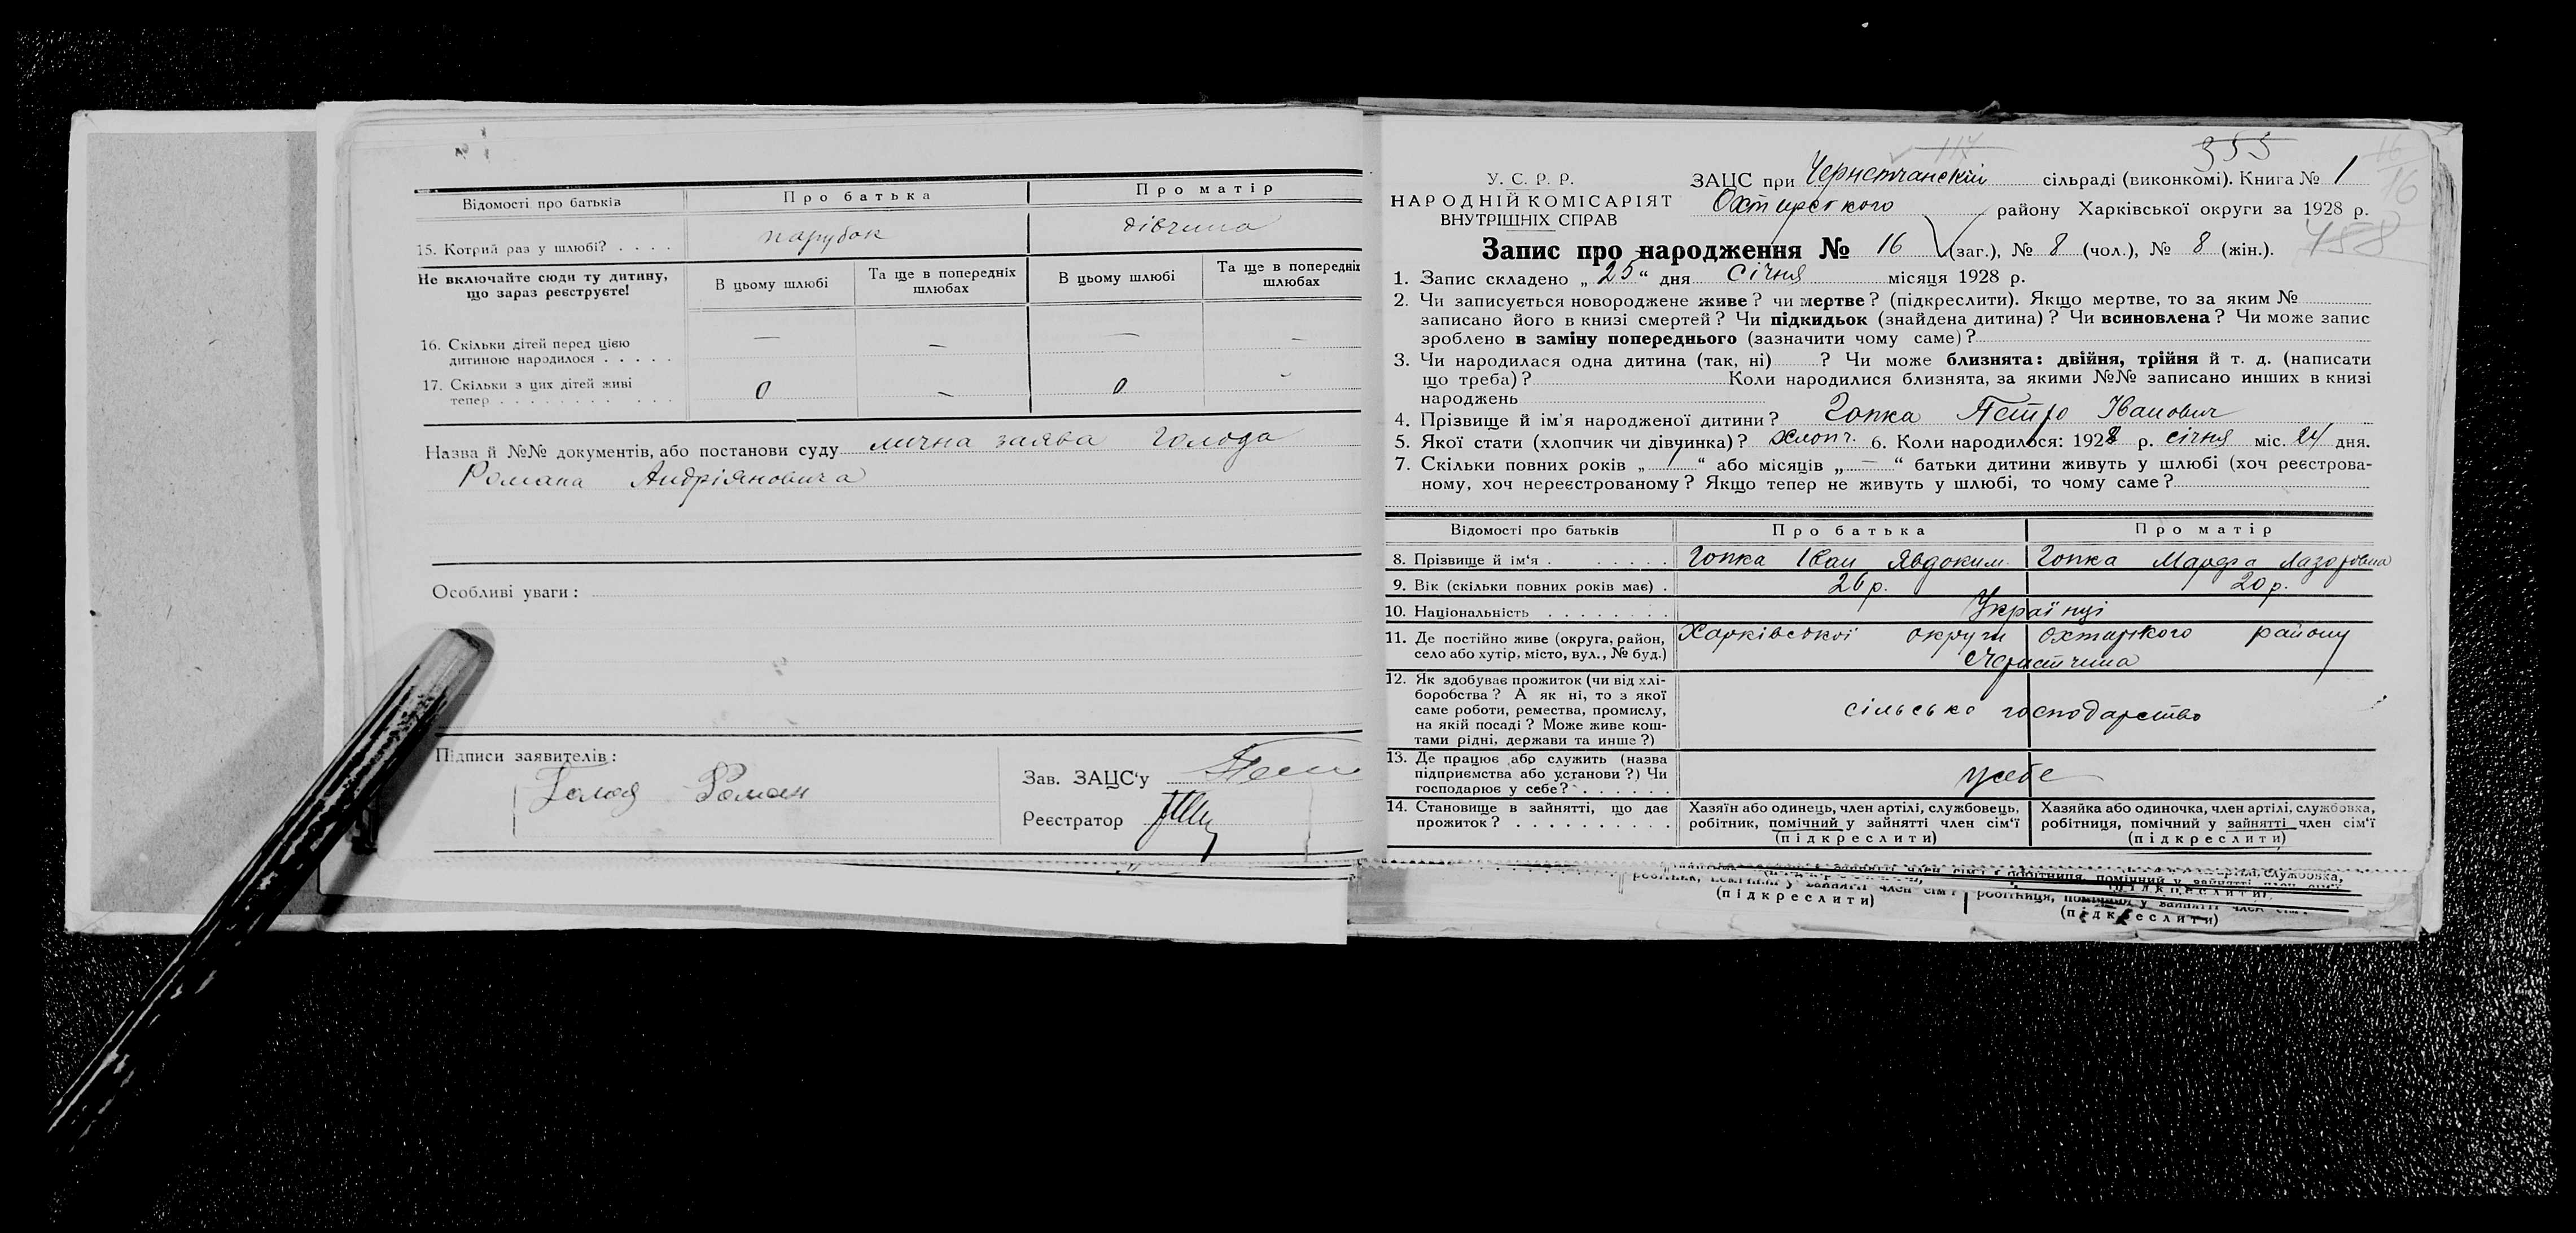 Відомості про батьків Про батька Про матір
15. Котрий раз у шлюбі? . . . . парубок дівчина
Не включайте сюди ту дитину, що зараз реєструєте! В цьому шлюбі Та ще в попередніх шлюбах В цьому шлюбі Та ще в попередніх шлюбах
16. Скільки дітей перед цією дитиною народилося . . . . . — — — —
17. Скільки з цих дітей живі тепер . . . . . . . . . . . 0 — 0 -
Назва й №№ документів, або постанови суду лична заява Голода
Романа Андріяновича
Особливі уваги:
Підписи заявителів:
Голод Роман
Зав. ЗАЦС'у
Реєстратор
114
353
16
16
458
У. С. Р. Р.
НАРОДНІЙ КОМІСАРІЯТ
ВНУТРІШНІХ СПРАВ
ЗАЦС при Чернетчанскій сільраді (виконкомі). Книга № 1
Охтирського району Харківської округи за 1928 р.
Запис про народження № 16 (заг.), № 8 (чол.), № 8 (жін.).
1. Запис складено „ 25 “ дня січня місяця 1928 р.
2. Чи записується новороджене живе? чи мертве? (підкреслити). Якщо мертве, то за яким №
записано його в книзі смертей? Чи підкидьок (знайдена дитина)? Чи всиновлена? Чи може запис
зроблено в заміну попереднього (зазначити чому саме)?
3. Чи народилася одна дитина (так, ні) ? Чи може близнята: двійня, трійня й т. д. (написати
що треба)? Коли народилися близнята, за якими №№ записано инших в книзі
народжень
4. Прізвище й ім'я народженої дитини? Гопка Петро Іванович
5. Якої стати (хлопчик чи дівчинка)? хлопч. 6. Коли народилося: 1928 р. січня міс. 24 дня.
7. Скільки повних років „ 1 “ або місяців „ — “ батьки дитини живуть у шлюбі (хоч реєстрова-
ному, хоч нереєстрованому? Якщо тепер не живуть у шлюбі, то чому саме?
Відомості про батьків Про батька Про матір
8. Прізвище й ім'я . . . . . . Гопка Іван Явдоким. Гопка Марфа Лазоровна
9. Вік (скільки повних років має) . 26 р. 20 р.
10. Національність . . . . . . . . Українці
11. Де постійно живе (округа, район, Харківської округи Охтирского району
село або хутір, місто, вул., № буд.) с. Чернетчина
12. Як здобуває прожиток (чи від хлі-
боробства? А як ні, то з якої
саме роботи, ремества, промислу, сільсько господарство
на якій посаді? Може живе кош-
тами рідні, держави та инше?)
13. Де працює або служить (назва
підприємства або установи?) Чи у себе
господарює у себе? . . . . . .
14. Становище в зайнятті, що дає Хазяїн або одинець, член артілі, службовець, Хазяйка або одиночка, член артілі, службовка,
прожиток? . . . . . . . . . . робітник, помічний у зайнятті член сім'ї робітниця, помічний у зайнятті член сім'ї
(підкреслити) (підкреслити)
(підкреслити) робітниця,
(підкреслити)